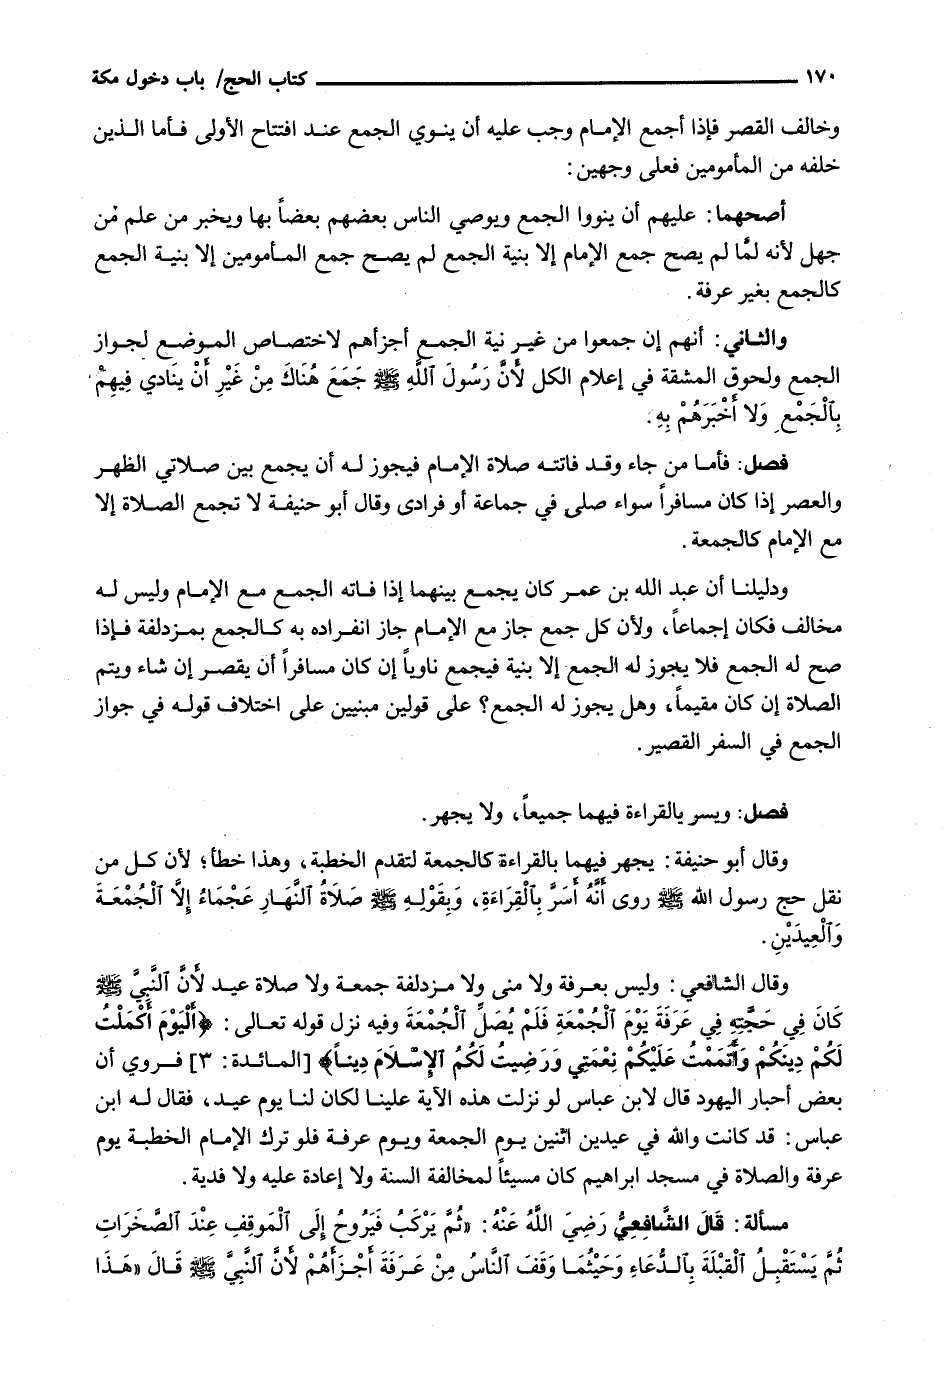 ١٧٠ ـــــــــــــــــــــ كتاب الحج/ باب دخول مكة
وخالف القصر فإذا أجمع الإمام وجب عليه أن ينوي الجمع عند افتتاح الأولى فأما الذين
خلفه من المأمومين فعلى وجهين:
أصحهما: عليهم أن ينووا الجمع ويوصي الناس بعضهم بعضاً بها ويخبر من علم مَن
جهل لأنه لمَّا لم يصح جمع الإمام إلا بنية الجمع لم يصح جمع المأمومين إلا بنية الجمع
كالجمع بغير عرفة.
والثاني: أنهم إن جمعوا من غير نية الجمع أجزأهم لاختصاص الموضع لجواز
الجمع ولحوق المشقة في إعلام الكل لأَنَّ رَسُولَ ٱللَّهِ ﷺ جَمَعَ هُنَاكَ مِنْ غَيْرِ أَنْ يِنَادي فِيهِمْ
بِٱلْجَمْعِ وَلا أَخْبَرَهُمْ بِهِ.
فصل: فأما من جاء وقد فاتته صلاة الإمام فيجوز له أن يجمع بين صلاتي الظهر
والعصر إذا كان مسافراً سواء صلى في جماعة أو فرادى وقال أبو حنيفة لا تجمع الصلاة إلا
مع الإمام كالجمعة.
ودليلنا أن عبد الله بن عمر كان يجمع بينهما إذا فاته الجمع مع الإمام وليس له
مخالف فكان إجماعاً، ولأن كل جمع جاز مع الإمام جاز انفراده به كالجمع بمزدلفة فإذا
صح له الجمع فلا يجوز له الجمع إلا بنية فيجمع ناوياً إن كان مسافراً أن يقصر إن شاء ويتم
الصلاة إن كان مقيماً، وهل يجوز له الجمع؟ على قولين مبنيين على اختلاف قوله في جواز
الجمع في السفر القصير.
فصل: ويسر بالقراءة فيهما جميعاً، ولا يجهر.
وقال أبو حنيفة: يجهر فيهما بالقراءة كالجمعة لتقدم الخطبة، وهذا خطأ؛ لأن كل من
نقل حج رسول الله ﷺ روى أَنَّهُ أَسَرَّ بِٱلْقِرَاءَةِ، وَبِقَوْلِهِ ﷺ صَلاَةُ ٱلنَّهَارِ عَجْمَاءُ إِلَّا ٱلْجُمْعَةَ
وَٱلْعِيدَيْنِ.
وقال الشافعي: وليس بعرفة ولا منى ولا مزدلفة جمعة ولا صلاة عيد لأَنَّ ٱلنَّبِيَّ ﷺ
كَانَ فِي حَجَّتِهِ فِي عَرَفَةَ يَوْمَ ٱلْجُمْعَةِ فَلَمْ يُصَلِّ ٱلْجُمْعَةَ وفيه نزل قوله تعالى: ﴿ٱلْيَوْمَ أَكْمَلْتُ
لَكُمْ دِينَكُمْ وَأَتْمَمْتُ عَلَيْكُمْ نِعْمَتِي وَرَضِيتُ لَكُمُ ٱلإِسْلاَمَ دِيناً﴾ [المائدة: ٣] فروي أن
بعض أحبار اليهود قال لابن عباس لو نزلت هذه الآية علينا لكان لنا يوم عيد، فقال له ابن
عباس: قد كانت والله في عيدين اثنين يوم الجمعة ويوم عرفة فلو ترك الإمام الخطبة يوم
عرفة والصلاة في مسجد ابراهيم كان مسيئاً لمخالفة السنة ولا إعادة عليه ولا فدية.
مسألة: قَالَ الشَّافِعِيُّ رَضِيَ اللَّهُ عَنْهُ: «ثُمَّ يَرْكَبُ فَيَرُوحُ إِلَى ٱلْمَوقِفِ عِنْدَ ٱلصَّخَرَاتِ
ثُمَّ يَسْتَقْبِلُ ٱلْقِبْلَةَ بِٱلدُّعَاءِ وَحَيْثُمَا وَقَفَ ٱلنَّاسُ مِنْ عَرَفَةَ أَجْزَأَهُمْ لأَنَّ ٱلنَّبِيَّ ﷺ قَالَ «هَذَا